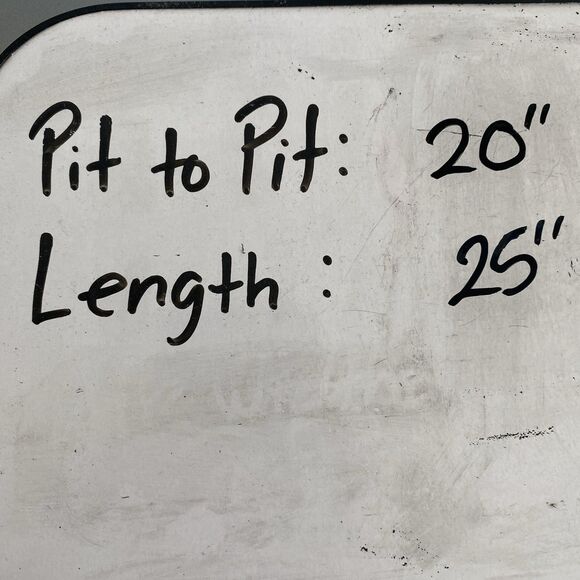 Pit to Pit: 20"
Length : 25"